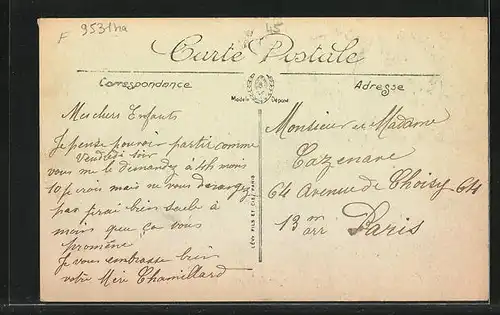 F 9531ha
Carte Postale
Correspondance
Adresse
Modèle Déposé
LÉVY FILS ET CIE, PARIS
Mes chers Enfants
Je pense pouvoir partir comme
Vendredi soir
vous me le demandez à 4h moins
10 j'irai mais ne vous derangez
pas j'irai bien seule à
moins que ça vous
promène
Je vous embrasse bien
votre Mère Chamillard
Monsieur et Madame
Cazenave
64 Avenue de Choisy 64
13 me arr Paris